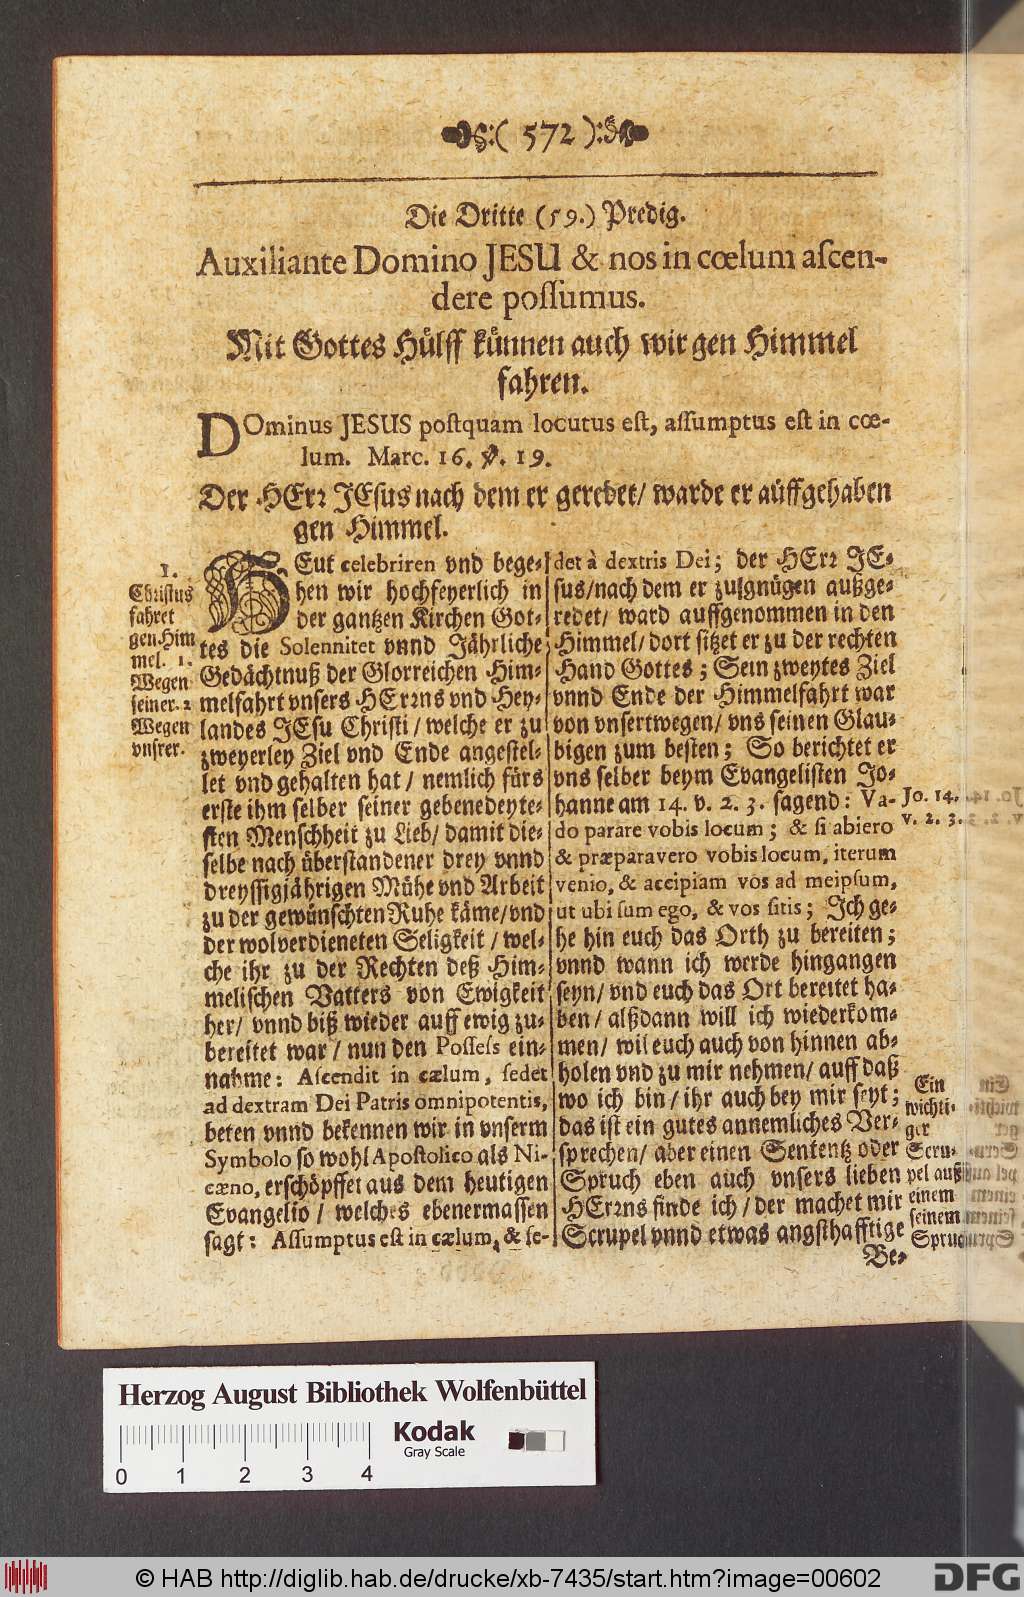 :( 572 ):
Die Dritte (59.) Predig.
Auxiliante Domino JESU & nos in cœlum aſcen-
dere poſſumus.
Mit Gottes Hülff künnen auch wir gen Himmel
fahren.
DOminus JESUS poſtquam locutus eſt, aſſumptus eſt in cœ-
lum. Marc. 16. ℣. 19.
Der HErꝛ JEsus nach dem er geredet/ warde er auffgehaben
gen Himmel.
1.
Chriſtus
fahret
gen Him
mel. 1.
Wegen
ſeiner. 2
Wegen
vnſrer.
HEut celebriren vnd bege-
hen wir hochfeyerlich in
der gantzen Kirchen Got-
tes die Solennitet vnnd Jährliche
Gedächtnuß der Glorreichen Him-
melfahrt vnſers HErꝛns vnd Hey-
landes JEſu Chriſti/ welche er zu
zweyerley Ziel vnd Ende angeſtel-
let vnd gehalten hat/ nemlich fürs
erſte ihm ſelber ſeiner gebenedeyte-
ſten Menſchheit zu Lieb/ damit die-
ſelbe nach überſtandener drey vnnd
dreyſſigjährigen Mühe vnd Arbeit
zu der gewünſchten Ruhe käme/ vnd
der wolverdieneten Seligkeit/ wel-
che ihr zu der Rechten deß Him-
meliſchen Vatters von Ewigkeit
her/ vnnd biß wieder auff ewig zu-
bereitet war/ nun den Poſſeſs ein-
nahme: Aſcendit in cælum, ſedet
ad dextram Dei Patris omnipotentis,
beten vnnd bekennen wir in vnſerm
Symbolo ſo wohl Apoſtolico als Ni-
cæno, erſchöpffet aus dem heutigen
Evangelio/ welches ebenermaſſen
ſagt: Aſſumptus eſt in cælum, & ſe-
det à dextris Dei; der HErꝛ JE-
ſus/ nach dem er zuſgnügen außge-
redet/ ward auffgenommen in den
Himmel/ dort ſitzet er zu der rechten
Hand Gottes; Sein zweytes Ziel
vnnd Ende der Himmelfahrt war
von vnſertwegen/ vns ſeinen Glau-
bigen zum beſten; So berichtet er
vns ſelber beym Evangeliſten Jo-
hanne am 14. v. 2. 3. ſagend: Va-
do parare vobis locum; & ſi abiero
& præparavero vobis locum, iterum
venio, & accipiam vos ad meipſum,
ut ubi ſum ego, & vos ſitis; Ich ge-
he hin euch das Orth zu bereiten;
vnnd wann ich werde hingangen
ſeyn/ vnd euch das Ort bereitet ha-
ben/ alßdann will ich wiederkom-
men/ wil euch auch von hinnen ab-
holen vnd zu mir nehmen/ auff daß
wo ich bin/ ihr auch bey mir ſeyt;
das iſt ein gutes annemliches Ver-
ſprechen/ aber einen Sententz oder
Spruch eben auch vnſers lieben
HErꝛns finde ich/ der machet mir
Scrupel vnnd etwas angſthafftige
Be-
Jo. 14.
v. 2. 3.
Ein
wichti-
ger
Scru-
pel auß
einem
ſeinem
Spruch
Herzog August Bibliothek Wolfenbüttel
Kodak
Gray Scale
0 1 2 3 4
© HAB http://diglib.hab.de/drucke/xb-7435/start.htm?image=00602
DFG